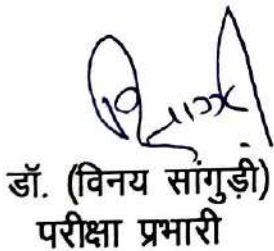 डॉ. (विनय सांगुड़ी)
परीक्षा प्रभारी